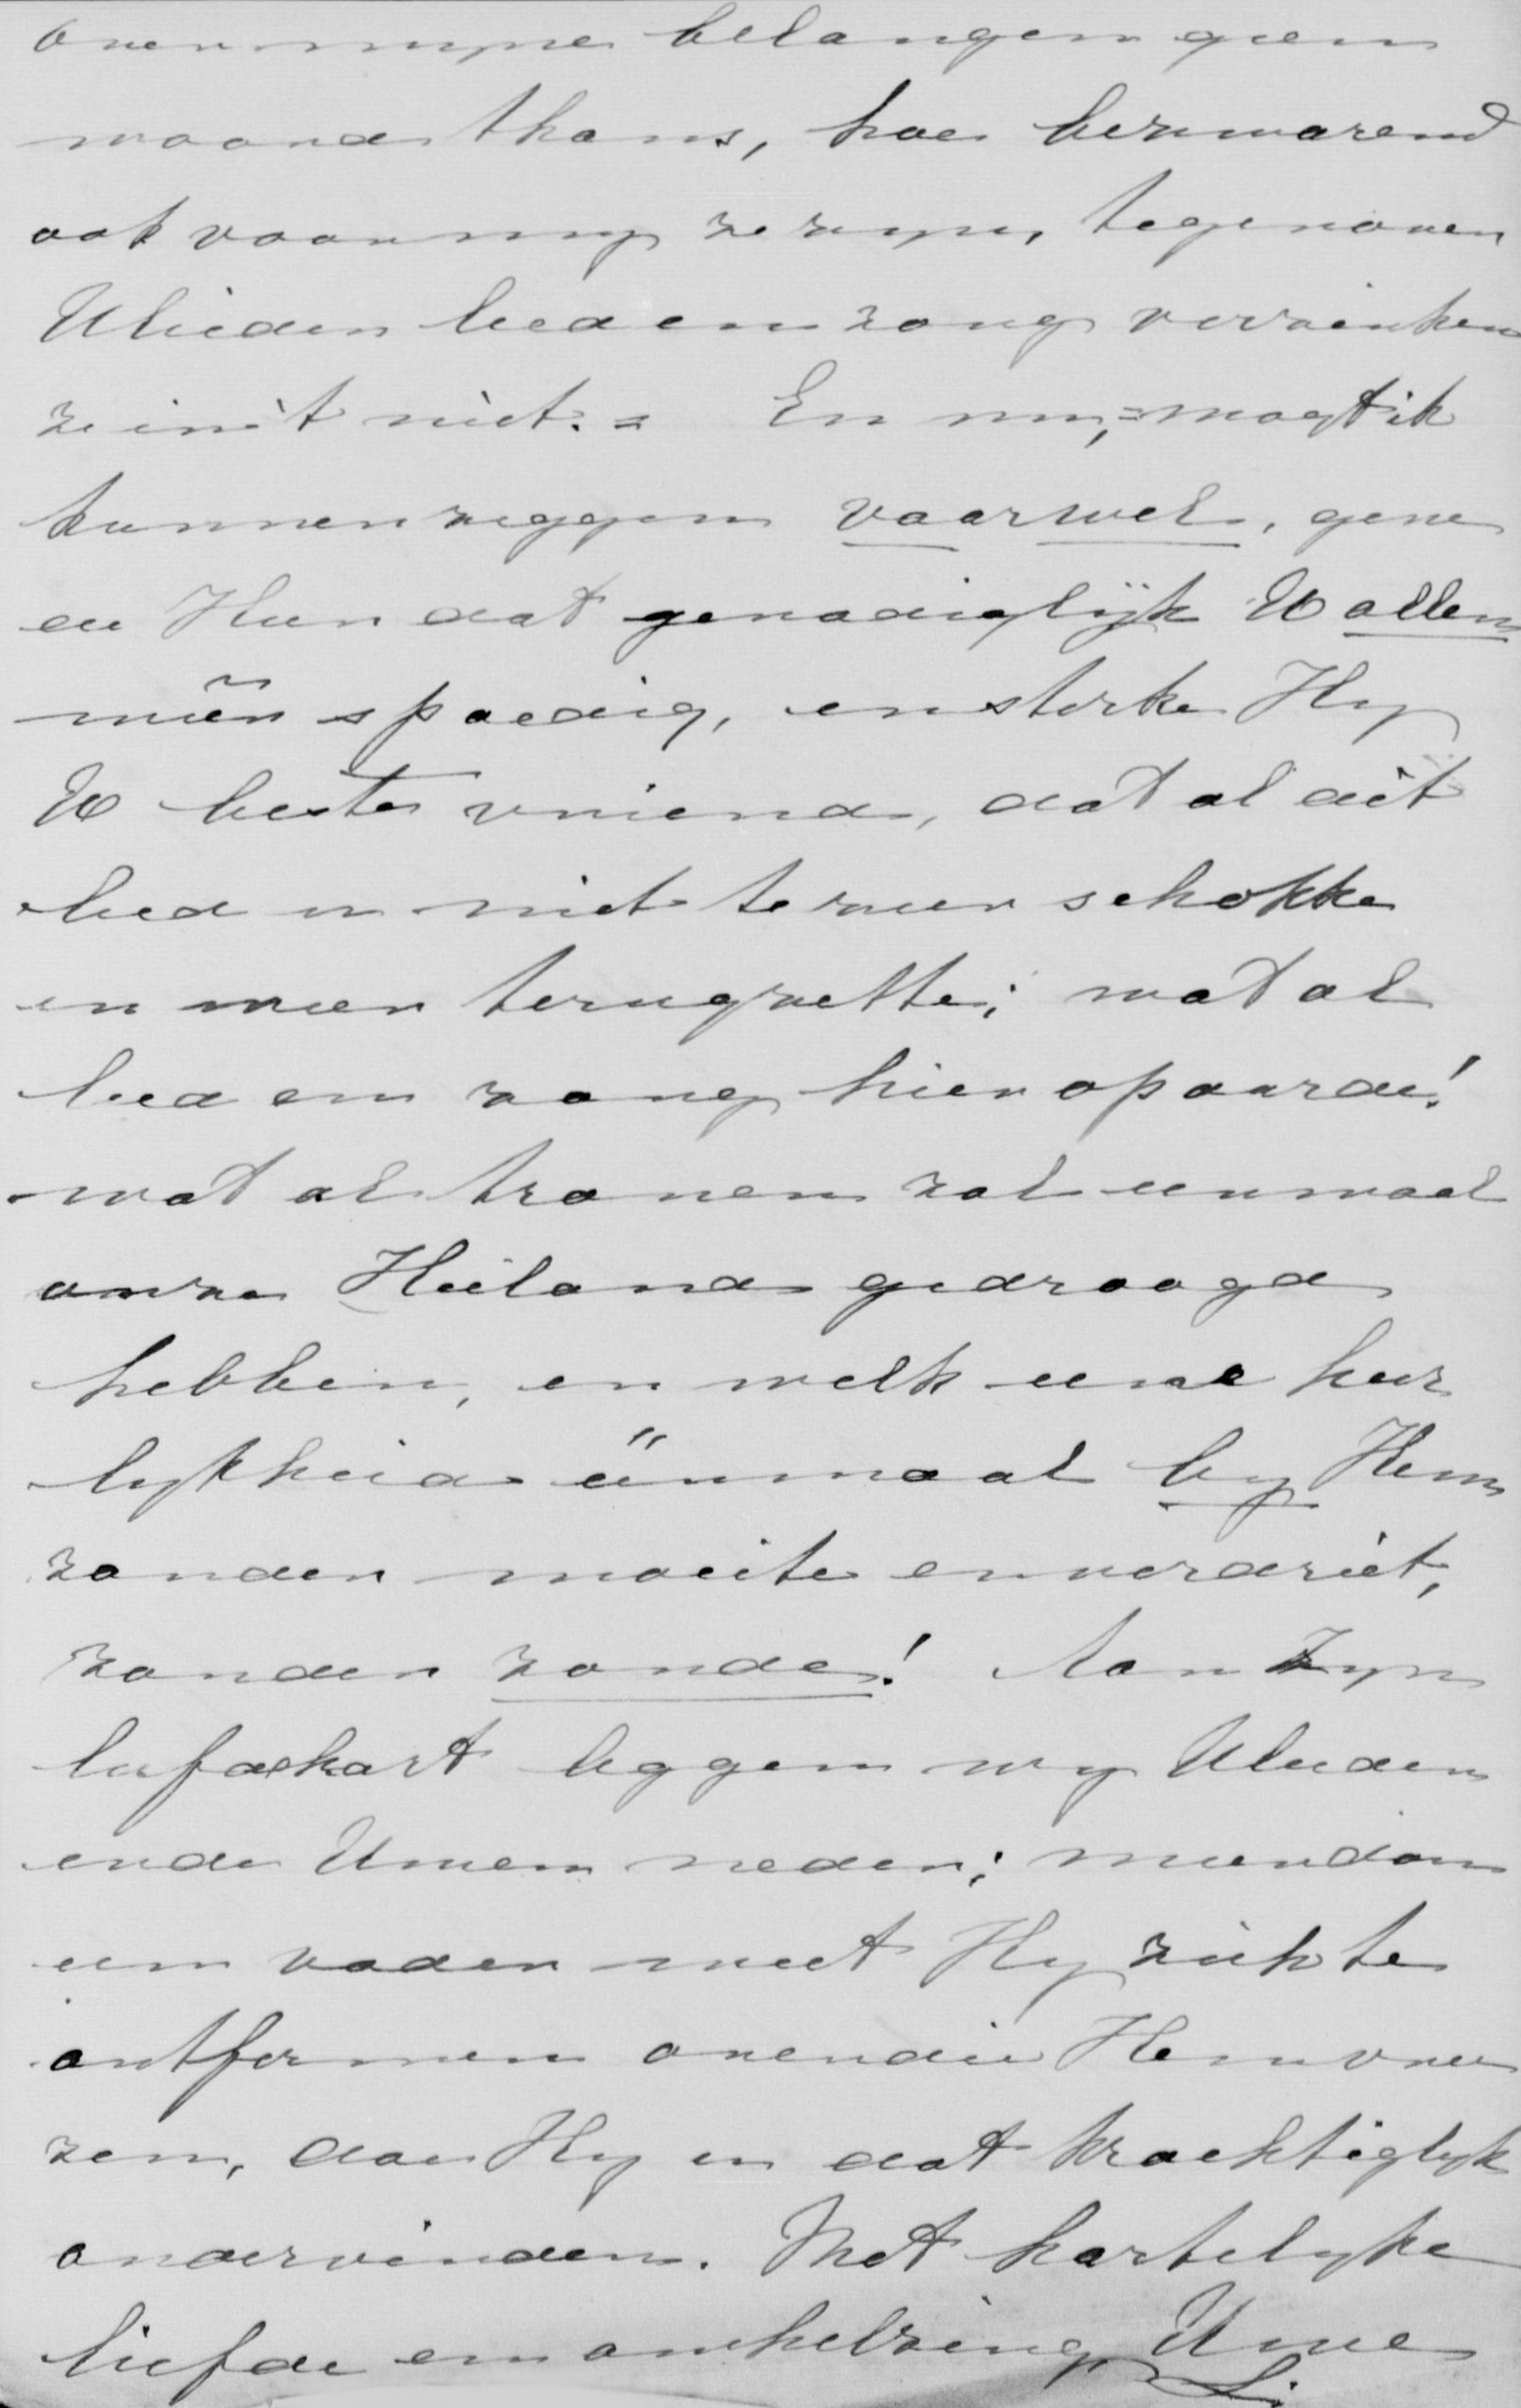 over myne belangen geen
woord thans, hoe bezwarend
ook voor my ze zyn, tegenover
Ulieder leed en zorg verzinken
ze in 't niet. = En nu, = mogt ik
kunnen zeggen vaarwel, geve
de Heer dat genadiglijk U allen
méér spoedig, en sterke Hy
U beste vriend, dat al dit
leed u niet te zeer schokke
en weer terugzette; wat al
leed en zorg hier op aarde!
wat al tranen zal eenmaal
onze Heiland gedroogd
hebben, en welk eene heer
lykheid éénmaal by Hem
zonder moeite en verdriet,
zonder zonde! Aan Zyn
liefdehart leggen wy Ulieden
en de Uwen neder; meer dan
een vader weet Hy zich te
ontfermen over die Hem vree
zen, doe Hy u dat krachtiglyk
ondervinden. Met hartelyke
liefde en omhelzing Uwe